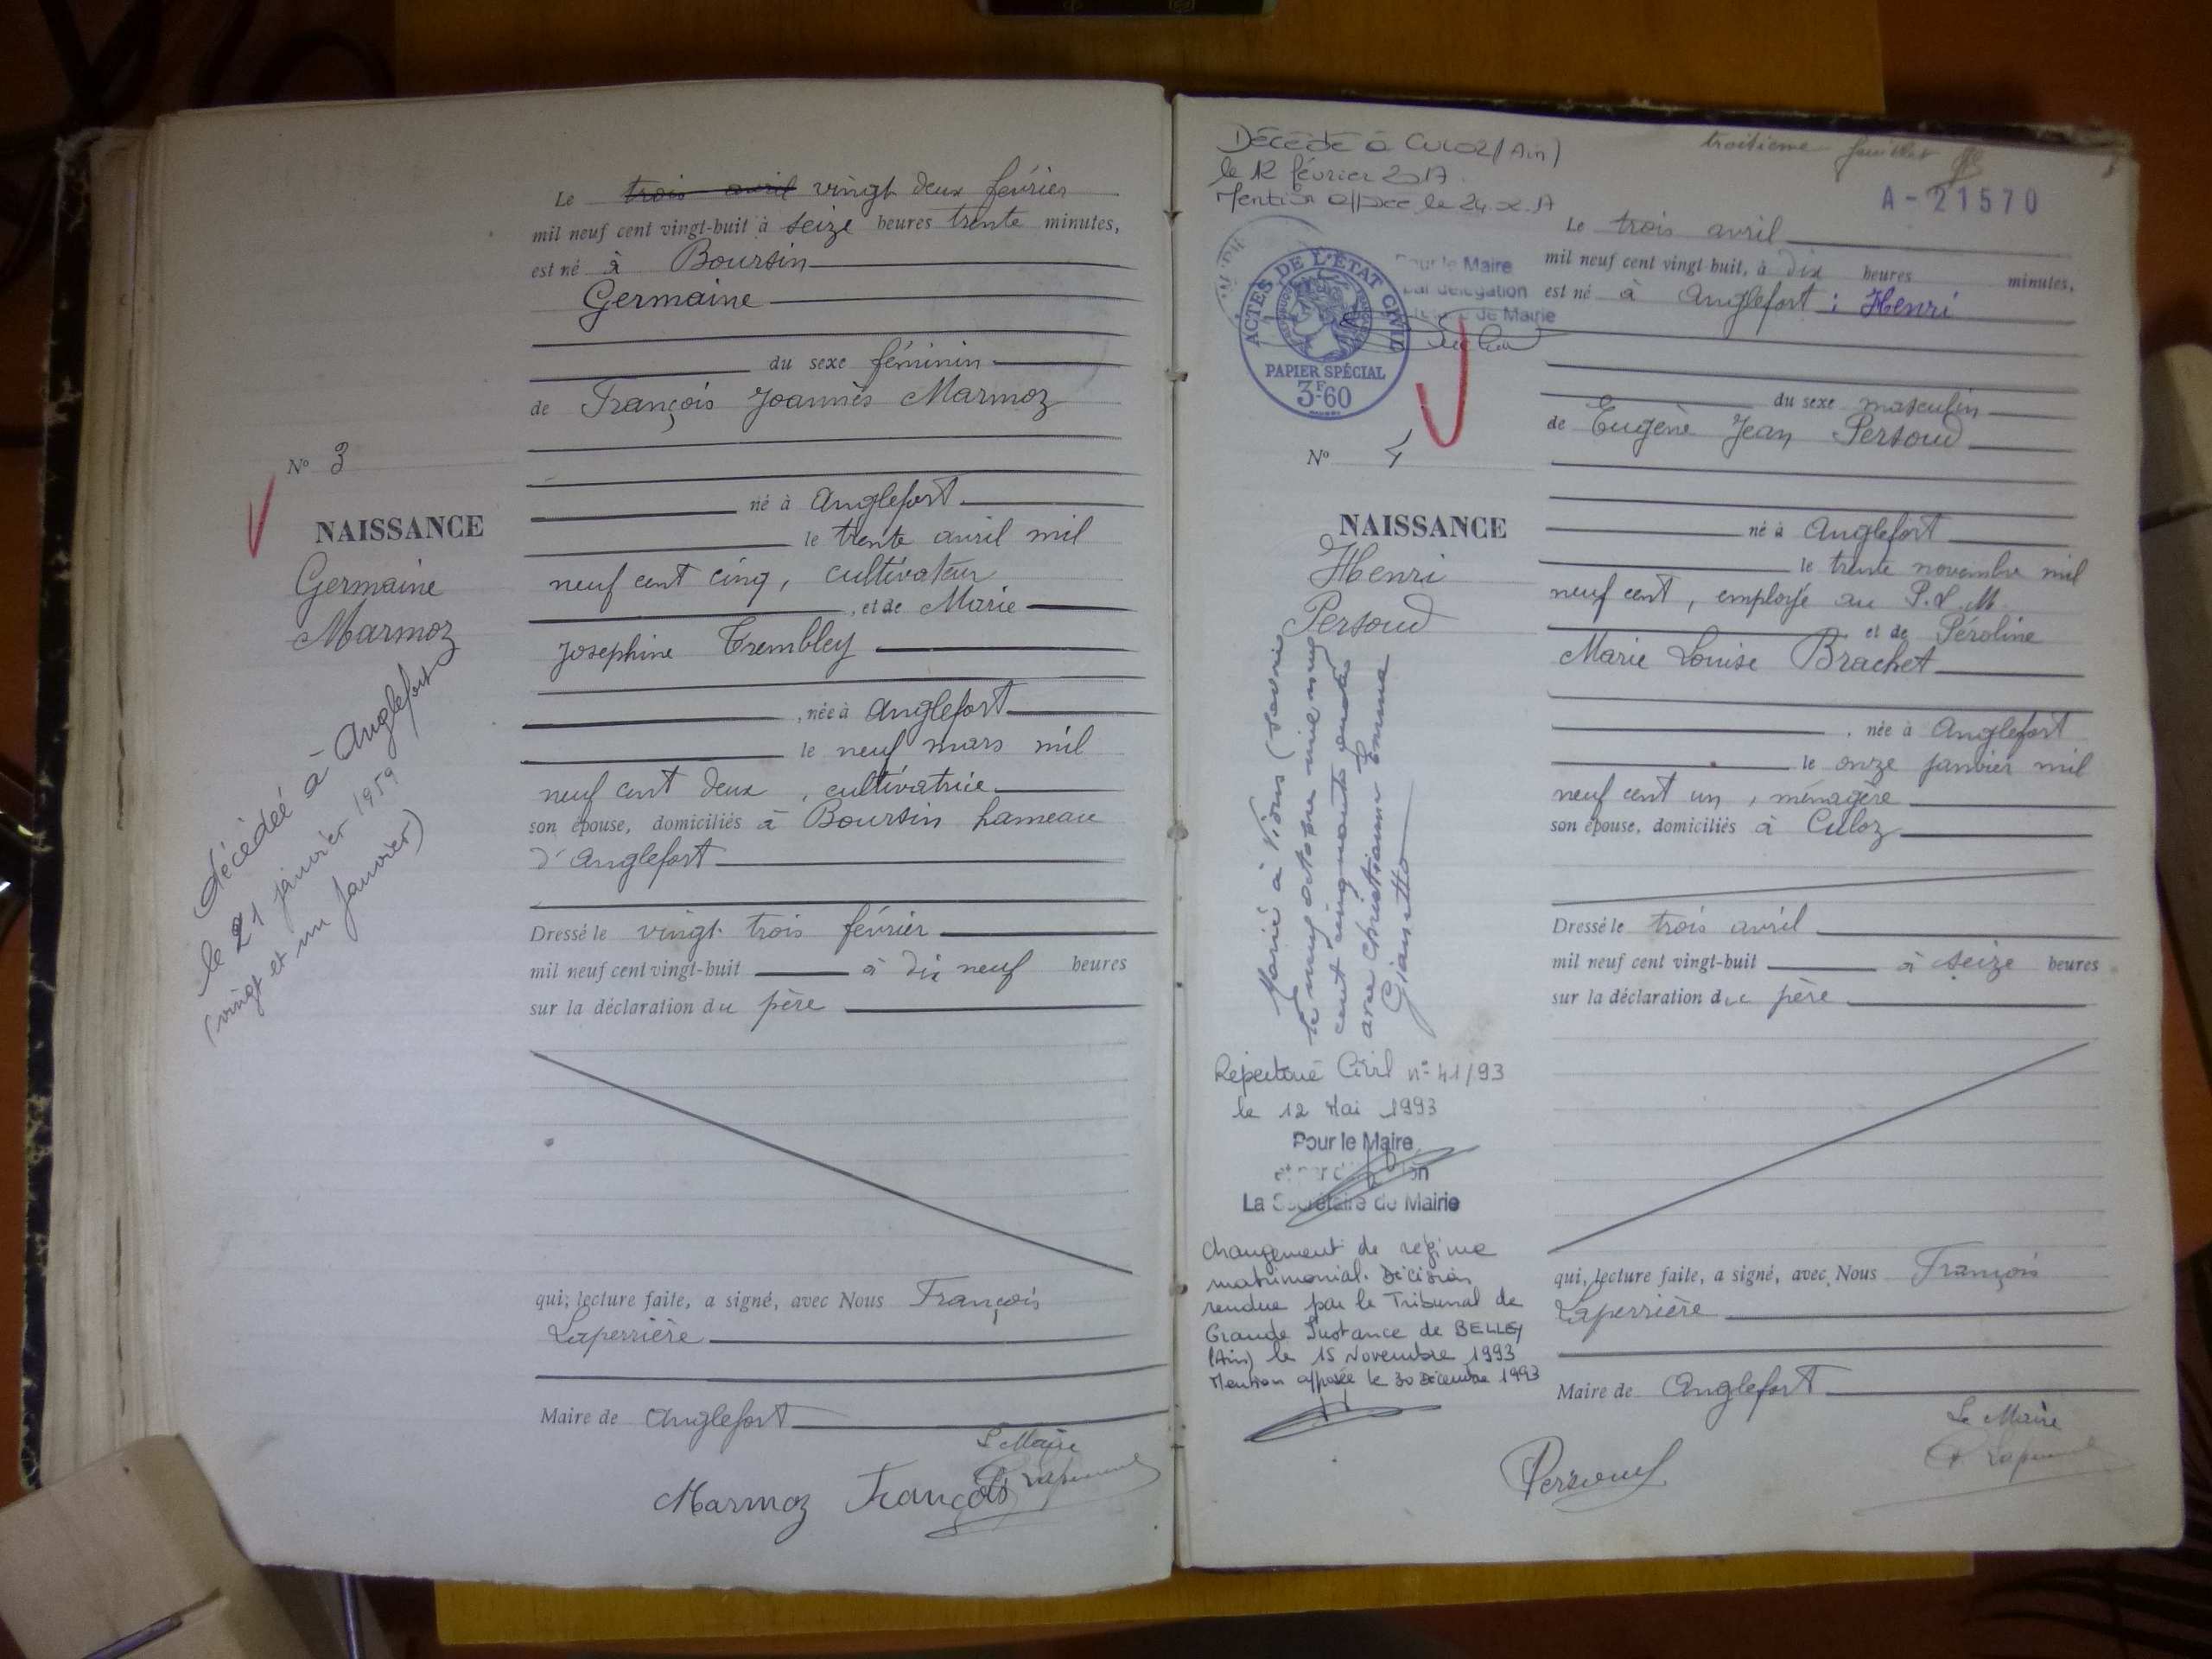 Le trois avril vingt deux février
mil neuf cent vingt-huit à seize heures trente minutes,
est né à Boursin
Germaine
du sexe féminin
de François Joannès Marmoz
né à Anglefort
le trente avril mil
neuf cent cinq, cultivateur
, et de Marie
Josephine Trembley
, née à Anglefort
le neuf mars mil
neuf cent deux, cultivatrice
son épouse, domiciliés à Boursin hameau
d'Anglefort
Dressé le vingt trois février
mil neuf cent vingt-huit à dix neuf heures
sur la déclaration du père
qui, lecture faite, a signé, avec Nous François
Laperrière
Maire de Anglefort
Le Maire
Marmoz François
N° 3
NAISSANCE
Germaine
Marmoz
décédée à Anglefort
le 21 janvier 1959
(vingt et un janvier)
Décédé à CULOZ (Ain)
le 12 février 2017.
Mention apposée le 24.02.17
Pour le Maire
par délégation
de Mairie
ACTES DE L'ÉTAT CIVIL
PAPIER SPÉCIAL
3F60
N° 4
NAISSANCE
Henri
Persoud
Marié à Vions (Savoie)
le neuf octobre mil neuf
cent cinquante
avec Christiane Emma
Gianetto
Répertoire Civil n° 41/93
le 12 Mai 1993
Pour le Maire
La Secrétaire de Mairie
Changement de régime
matrimonial. Décision
rendue par le Tribunal de
Grande Instance de BELLEY
(Ain) le 15 Novembre 1993
Mention apposée le 30 Décembre 1993
troisième feuillet
A-21570
Le trois avril
mil neuf cent vingt-huit, à dix heures minutes,
est né à Anglefort : Henri
du sexe masculin
de Eugène Jean Persoud
né à Anglefort
le trente novembre mil
neuf cent, employé au P.L.M.
et de Péroline
Marie Louise Brachet
, née à Anglefort
le onze janvier mil
neuf cent un, ménagère
son épouse, domiciliés à Culoz
Dressé le trois avril
mil neuf cent vingt-huit à seize heures
sur la déclaration du père
qui, lecture faite, a signé, avec Nous François
Laperrière
Maire de Anglefort
Le Maire
Persoud